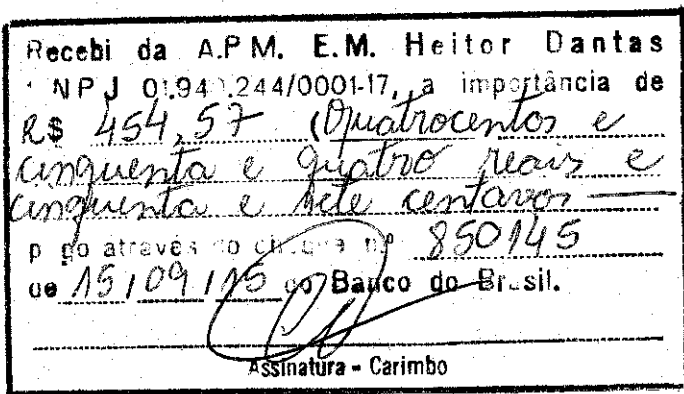 Recebi da A.P.M. E.M. Heitor Dantas
CNPJ 01.940.244/0001-17, a importância de
R$ 454,57 (Quatrocentos e
cinquenta e quatro reais e
cinquenta e sete centavos
pago através do cheque nº 850145
de 15/09/15 do Banco do Brasil.
Assinatura - Carimbo